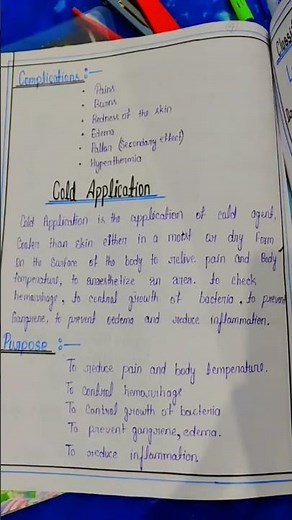 Complications :-
• Pains
• Burns
• Redness of the skin
• Edema
• Pallar (Secondary effect)
• Hyperthermia
Cold Application
Cold Application is the application of cold agent,
Cooler than skin either in a moist or dry form
on the surface of the body to relive pain and Body
temperature, to anaesthetize an area. to check
hemorrhage, to control growth of bacteria, to prevent
Gangrene, to prevent oedema and reduce inflammation.
Purpose :-
To reduce pain and body temperature.
To control hemorrhage
To Control growth of bacteria
To prevent gangrene, edema.
To reduce inflammation